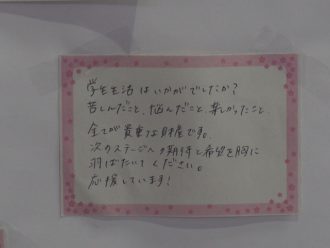 学生生活はいかがでしたか?
苦しんだこと、悩んだこと、楽しかったこと、
全てが貴重な財産です。
次のステージへの期待と希望を胸に
羽ばたいてください。
応援しています!